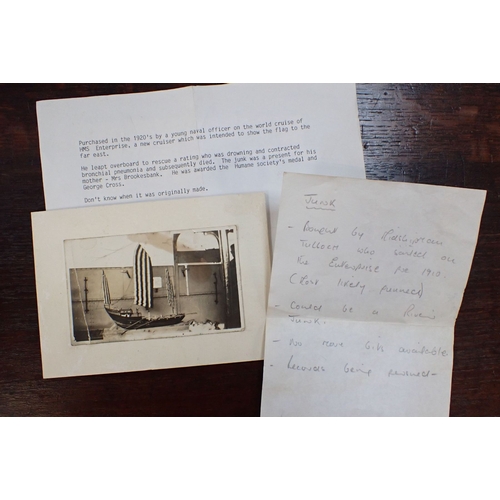 Purchased in the 1920's by a young naval officer on the world cruise of
HMS Enterprise, a new cruiser which was intended to show the flag to the
far east.
He leapt overboard to rescue a rating who was drowning and contracted
bronchial pneumonia and subsequently died. The junk was a present for his
mother - Mrs Brookesbank. He was awarded the Humane society's medal and
George Cross.
Don't know when it was originally made.
Junk
- Bought by Midshipman
Tulloch who served on
the Enterprise
- Could be a
Junk.
- No more available
- being